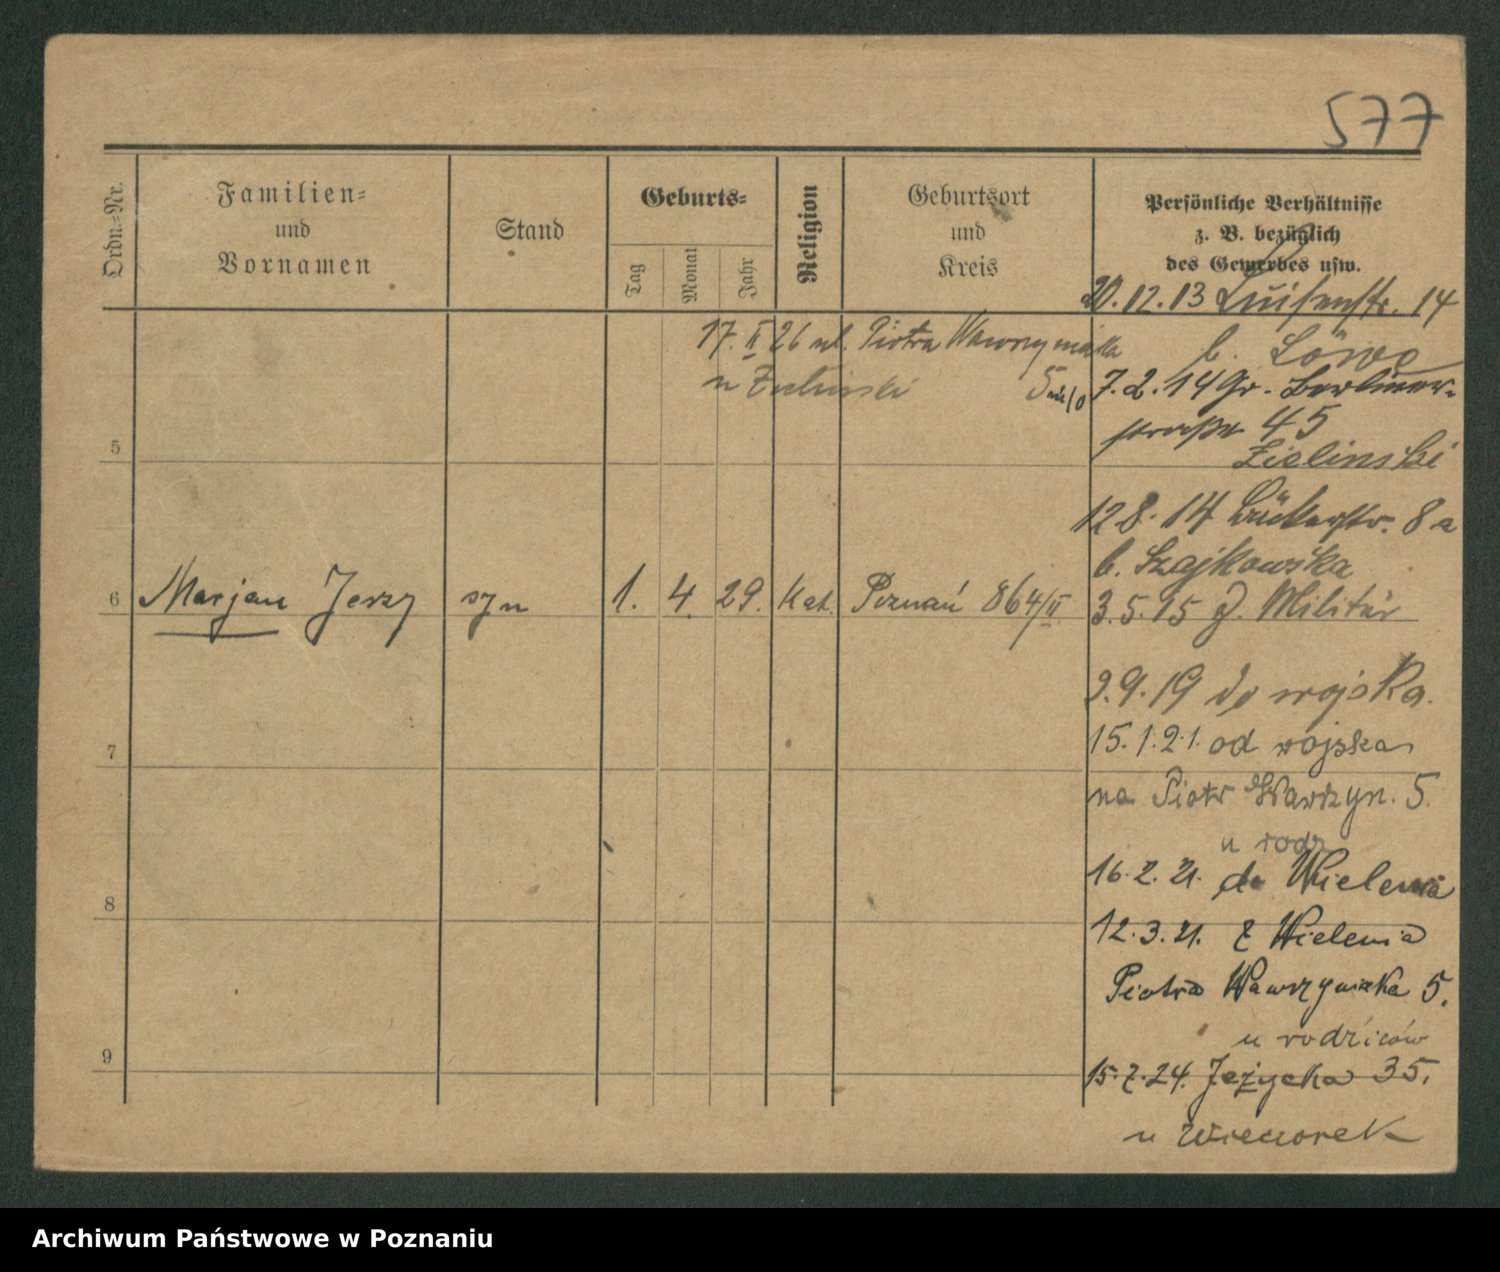 577
Ordn.=Nr.
Familien=
und
Vornamen
Stand
Geburts=
Tag
Monat
Jahr
Religion
Geburtsort
und
Kreis
Persönliche Verhältnisse
z. B. bezüglich
des Gewerbes usw.
20.12.13 Luisenstr. 14
b. Löwe
17.II 26 ul. Piotra Wawrzyniaka
u Zielinski 5
7.2.14 Gr. Berliner-
straße 45
Zielinski
5
12 8. 14 Bäckerstr. 8a
b. Szajkowska
6
Marjan Jerzy
syn
1.
4.
29.
Kat.
Poznań 864/II.
3.5.15 z. Militär
2.9.19 do wojska.
15.1.21. od wojska
7
na Piotr Wawrzyn. 5.
u rodz
16.2.21. do Wielenia
8
12.3.21. z Wielenia
Piotra Wawrzyniaka 5.
u rodziców
9
15.7.24. Jeżycka 35.
u Wieczorek
Archiwum Państwowe w Poznaniu